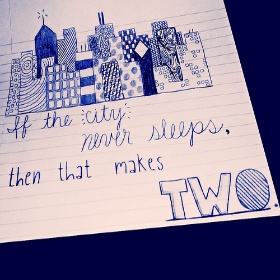 If the city
never sleeps,
then that makes
TWO.